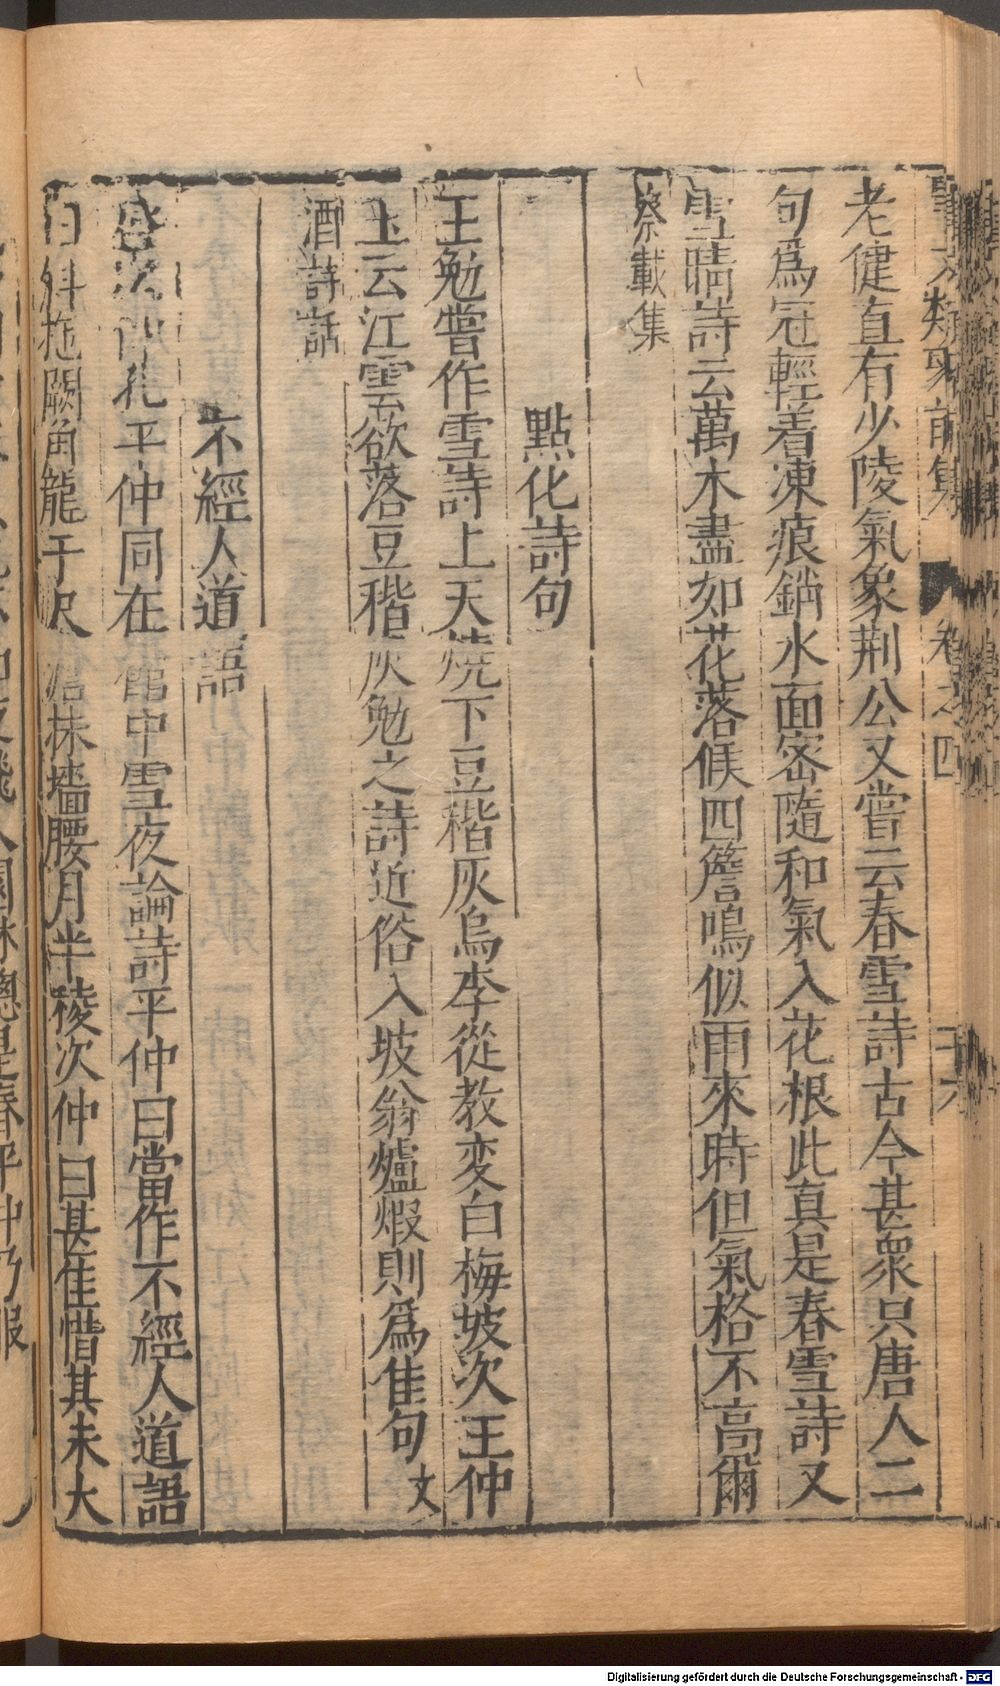 事文類聚前集 卷之四 十六
老健直有少陵氣象荆公又嘗云春雪詩古今甚衆只唐人二
句爲冠輕着凍痕銷水面密隨和氣入花根此真是春雪詩又
雪晴詩云萬木盡如花落候四簷鳴似雨來時但氣格不高爾
蔡載集
點化詩句
王勉嘗作雪詩上天燒下豆稭灰烏李從教変白梅坡次王仲
玉云江雲欲落豆稭灰勉之詩近俗入坡翁爐煆則爲佳句文
酒詩話
不經人道語
平仲同在館中雪夜論詩平仲曰當作不經人道語
曰斜拖闕角龍千尺淡抹墻腰月半稜次仲曰甚佳惜其未大
園林總是春平仲乃服
Digitalisierung gefördert durch die Deutsche Forschungsgemeinschaft - DFG